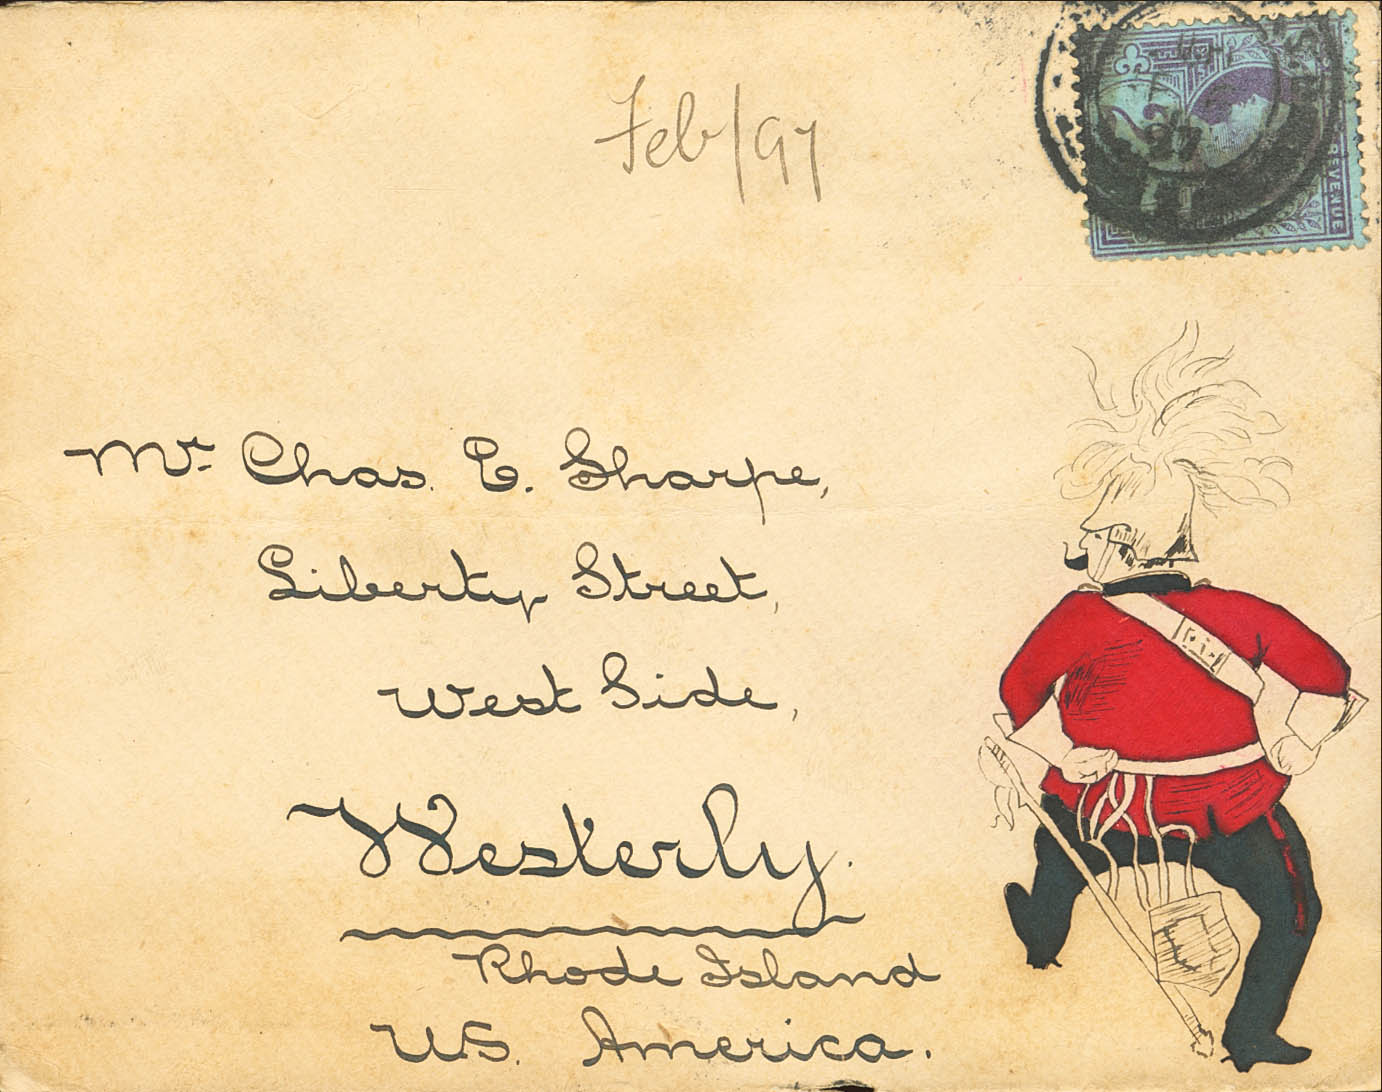 Feb/97
REVENUE
97
Mr. Chas. E. Sharpe,
Liberty Street,
West Side,
Westerly.
Rhode Island
U.S. America.